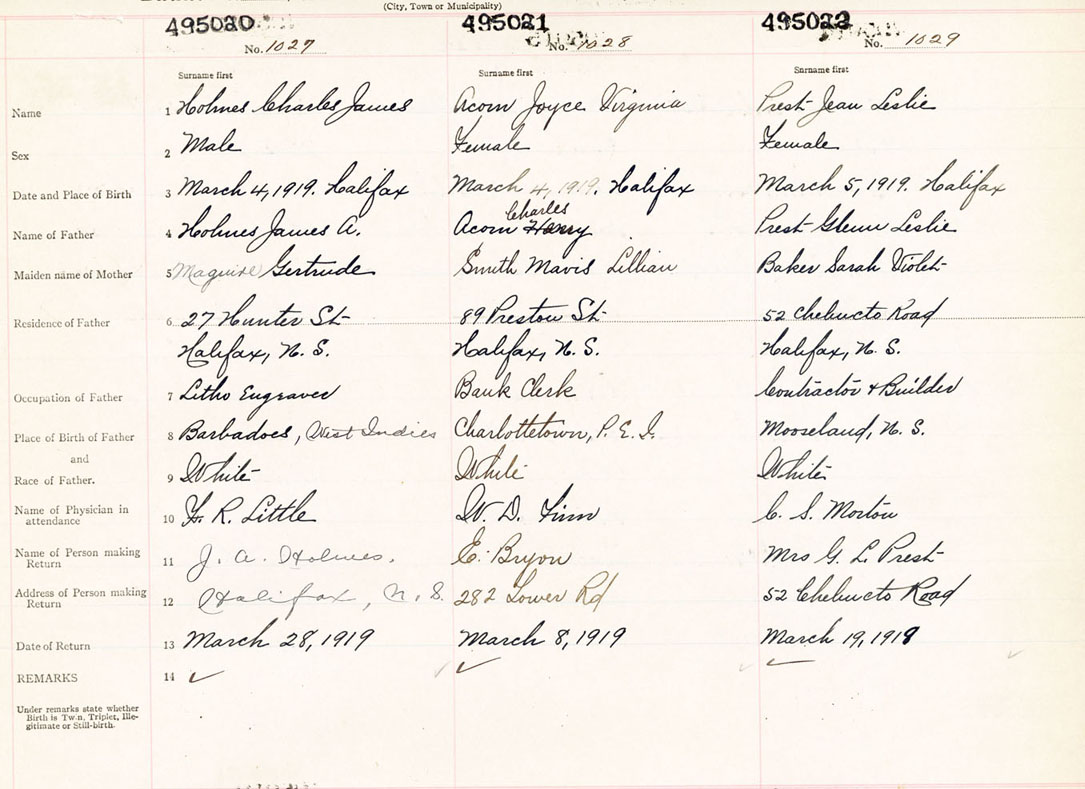 (City, Town or Municipality)
495020 495021 495022
No. 1027 No. 1028 No. 1029
Surname first Surname first Surname first
Name 1 Holmes Charles James Acorn Joyce Virginia Prest Jean Leslie
Sex 2 Male Female Female
Date and Place of Birth 3 March 4, 1919. Halifax March 4, 1919. Halifax March 5, 1919. Halifax
Charles
Name of Father 4 Holmes James A. Acorn Harry Prest Glenn Leslie
Maiden name of Mother 5 Maguire Gertrude Smith Mavis Lillian Baker Sarah Violet
Residence of Father 6 27 Hunter St 89 Preston St 52 Chebucto Road
Halifax, N. S. Halifax, N. S. Halifax, N. S.
Occupation of Father 7 Litho Engraver Bank Clerk Contractor + Builder
Place of Birth of Father 8 Barbadoes, West Indies Charlottetown, P. E. I. Mooseland, N. S.
and
Race of Father. 9 White White White
Name of Physician in
attendance 10 F. R. Little W. D. Finn C. S. Morton
Name of Person making
Return 11 J. A. Holmes. E. Bryon Mrs G. L. Prest
Address of Person making
Return 12 Halifax, N. S. 282 Lower Rd 52 Chebucto Road
Date of Return 13 March 28, 1919 March 8, 1919 March 19, 1919
REMARKS 14 ✓ ✓ ✓
Under remarks state whether
Birth is Twin, Triplet, Ille-
gitimate or Still-birth.